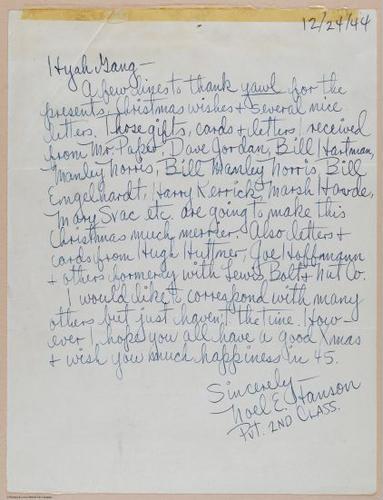 12/24/44
Hyah Gang —
A few lines to thank yawl for the
presents, Christmas wishes & several nice
letters. Those gifts, cards & letters I received
from Mr. Paper, Dave Jordan, Bill Hartman,
Manley Norris, Bill Manley Norris, Bill
Engelhardt, Harry Kerrick, Marsh Hawde,
Mary Svac etc. are going to make this
Christmas much merrier. Also letters &
cards from Hugh Huttner, Joe Hoffmann
& others formerly with Lewis Bolt & Nut Co.
I would like to correspond with many
others but just haven't the time. How-
ever I hope you all have a good Xmas
& wish you much happiness in 45.
Sincerely —
Noel E. Hanson
Pvt. 2ND CLASS.